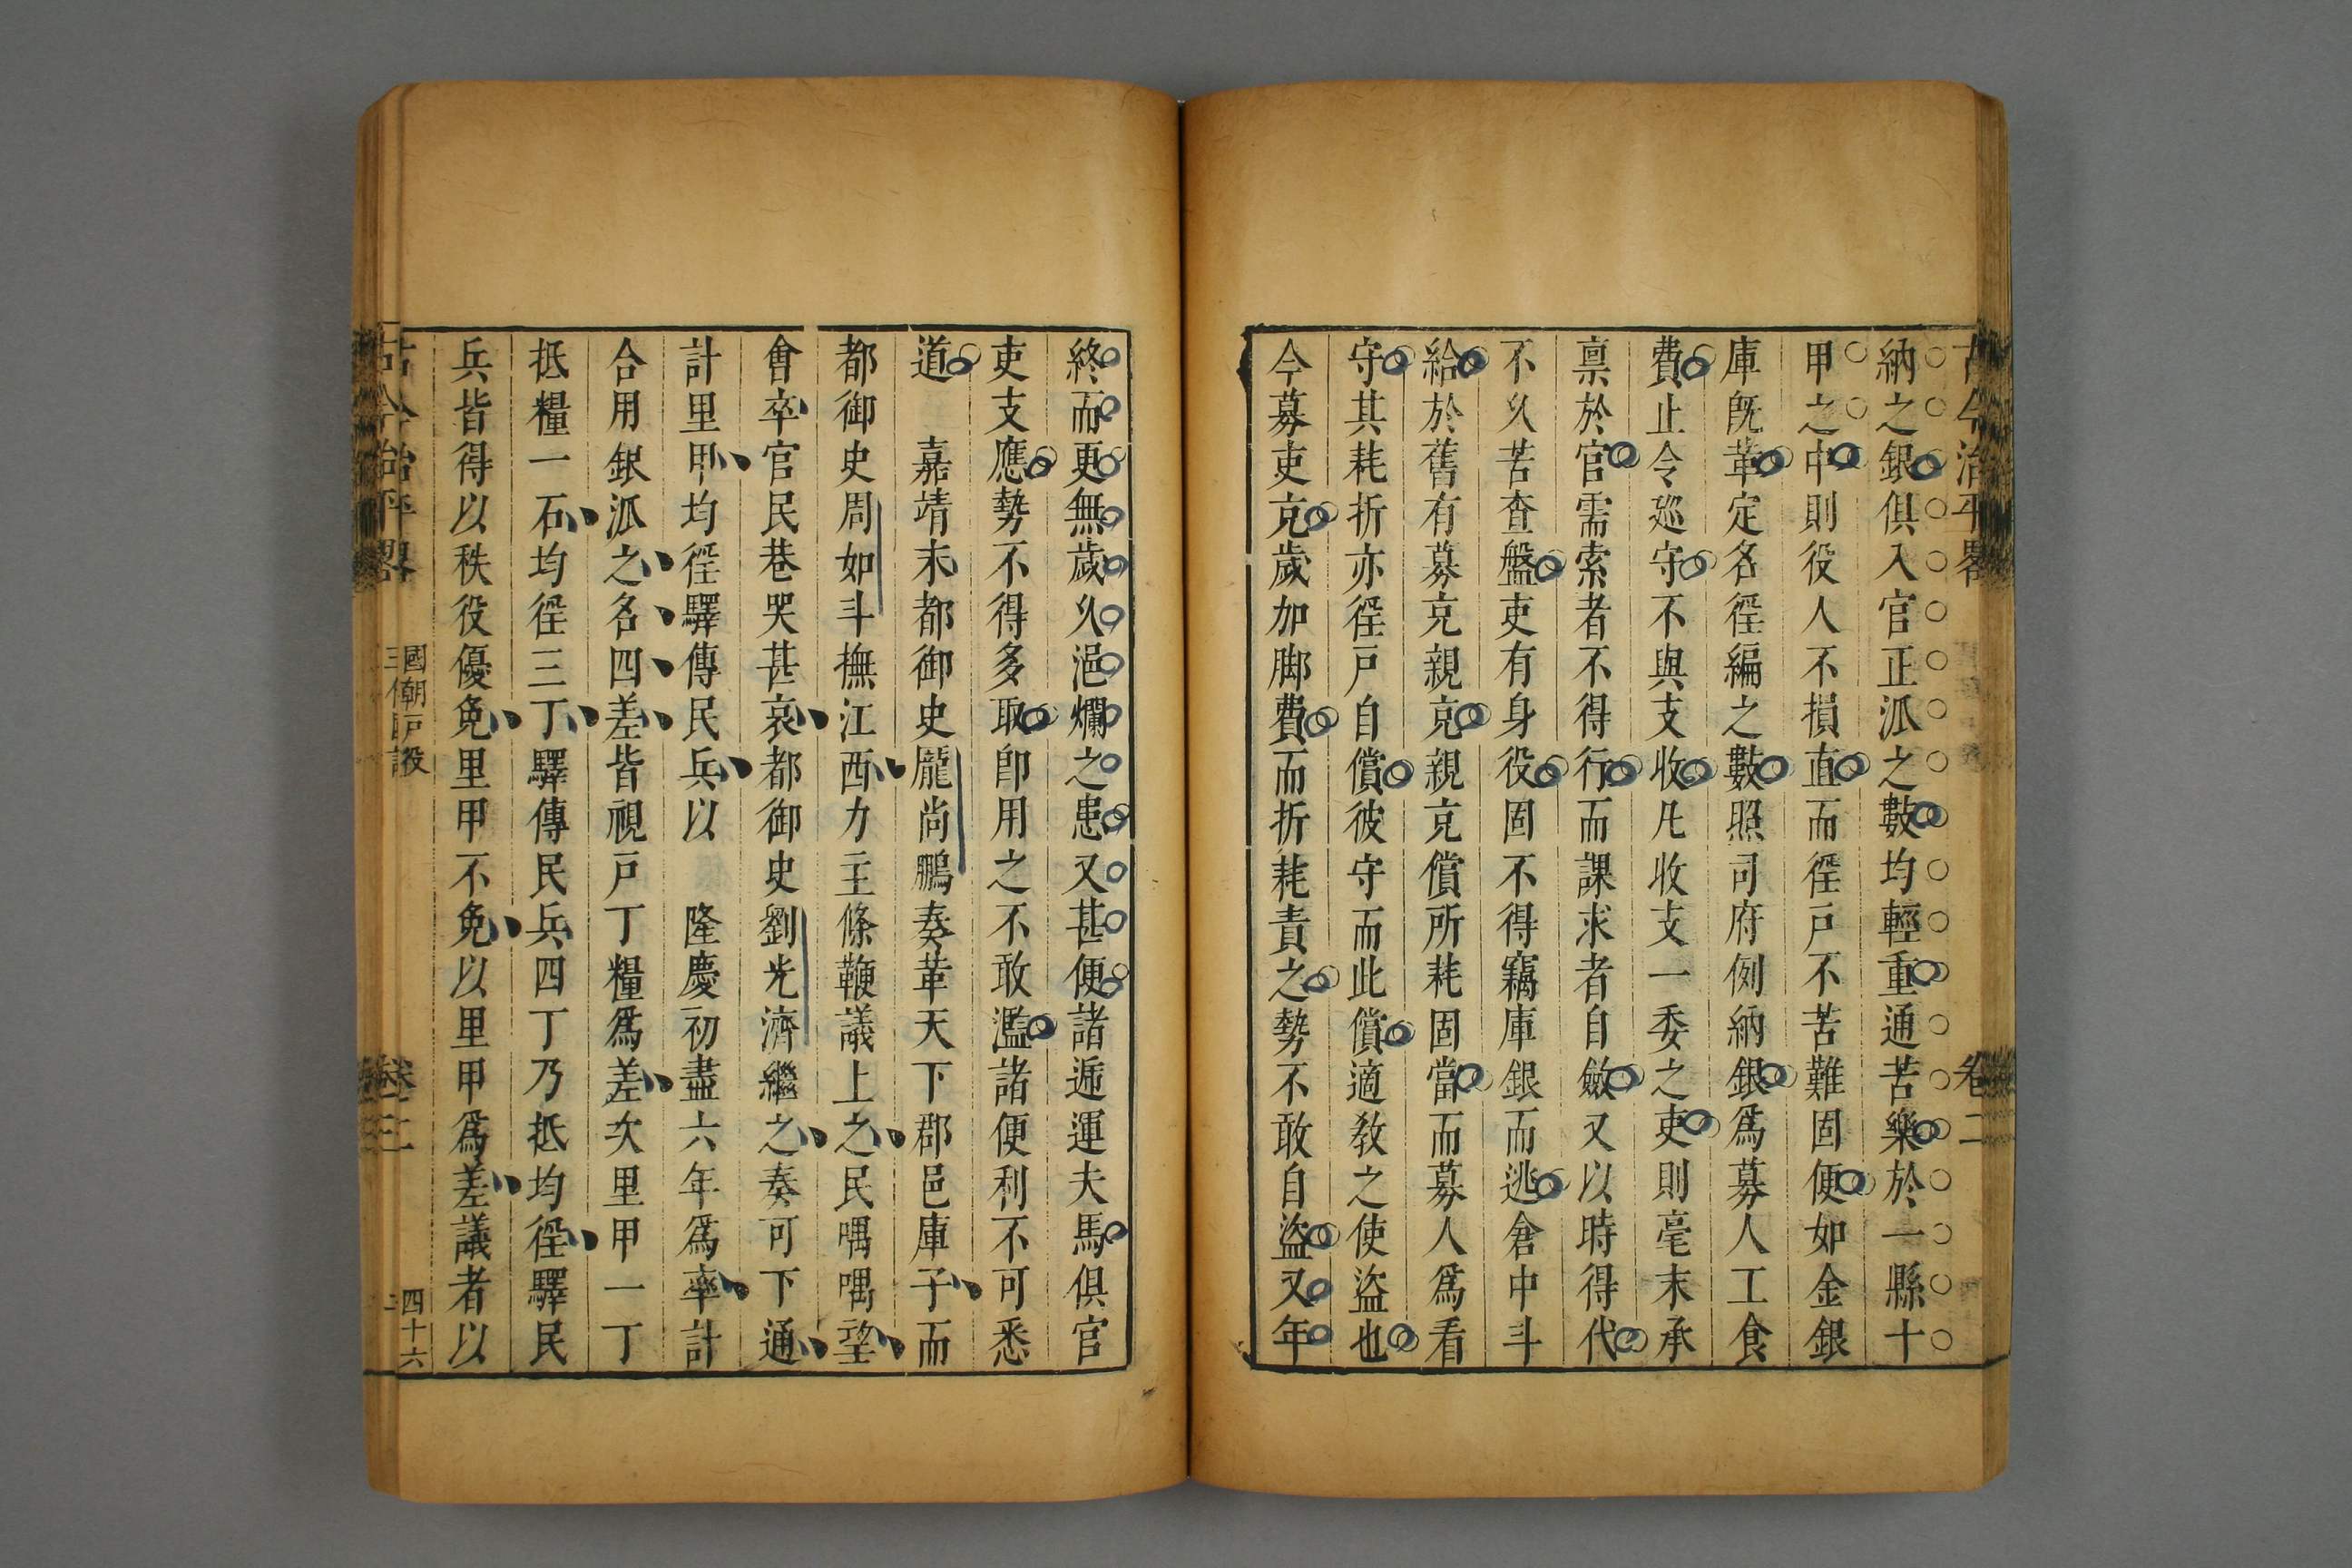 古今治平畧
卷二
納之銀俱入官正派之數均輕重通苦樂於一縣十
甲之中則役人不損直而徭戸不苦難固便如金銀
庫旣革定名徭編之數照司府例納銀爲募人工食
費止令廵守不與支收凡收支一委之吏則毫末承
禀於官需索者不得行而課求者自斂又以時得代
不乆苦查盤吏有身役固不得竊庫銀而逃倉中斗
給於舊有募充親充親充償所耗固當而募人爲看
守其耗折亦徭戸自償彼守而此償適敎之使盜也
今募吏充歲加脚費而折耗責之勢不敢自盜又年
終而更無歲乆浥爛之患又甚便諸遞運夫馬俱官
吏支應勢不得多取卽用之不敢濫諸便利不可悉
道　嘉靖末都御史龎尚鵬奏革天下郡邑庫子而
都御史周如斗撫江西力主條鞭議上之民喁喁望
會卒官民巷哭甚哀都御史劉光濟繼之奏可下通
計里甲均徭驛傳民兵以　隆慶初盡六年爲率計
合用銀派之名四差皆視戸丁糧爲差次里甲一丁
抵糧一石均徭三丁驛傳民兵四丁乃抵均徭驛民
兵皆得以秩役優免里甲不免以里甲爲差議者以
古今治平畧
國朝戸役
卷二
四十六